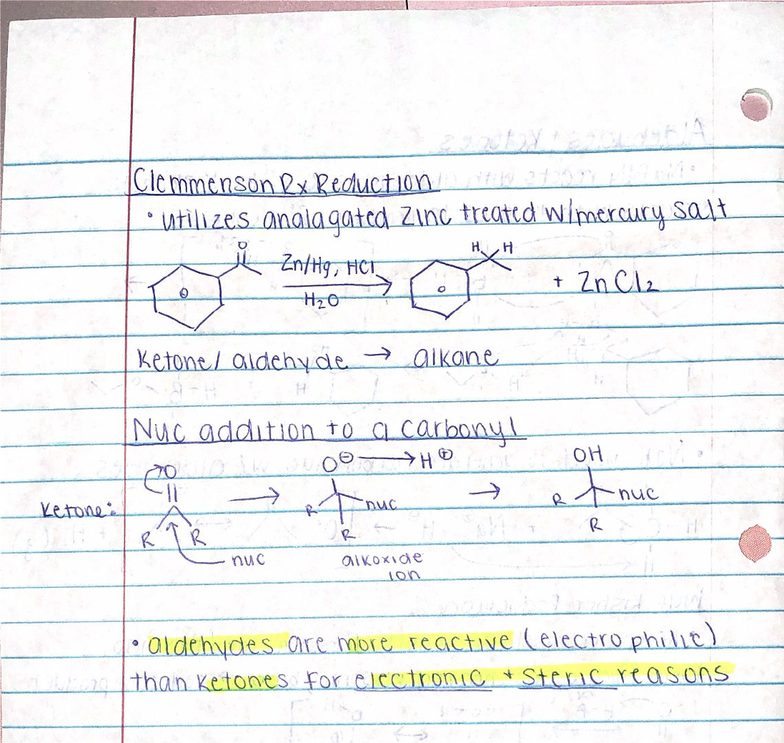 Clemmenson Rx Reduction
• utilizes analagated zinc treated w/mercury salt
O
Zn/Hg, HCl
H2O
H H
+ ZnCl2
Ketone/ aldehyde → alkane
Nuc addition to a carbonyl
Ketone:
O
R R
nuc
→
O⊖ → H⊕
R nuc
R
alkoxide
ion
→
OH
R nuc
R
• aldehydes are more reactive (electrophilic)
than ketones for electronic + steric reasons